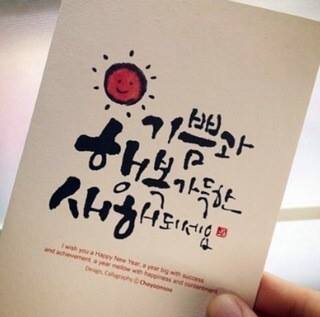 기쁨과
행복 가득한
새해 되세요
I wish you a Happy New Year, a year big with success
and achievement, a year mellow with happiness and contentment.
Design, Calligraphy ⓒ